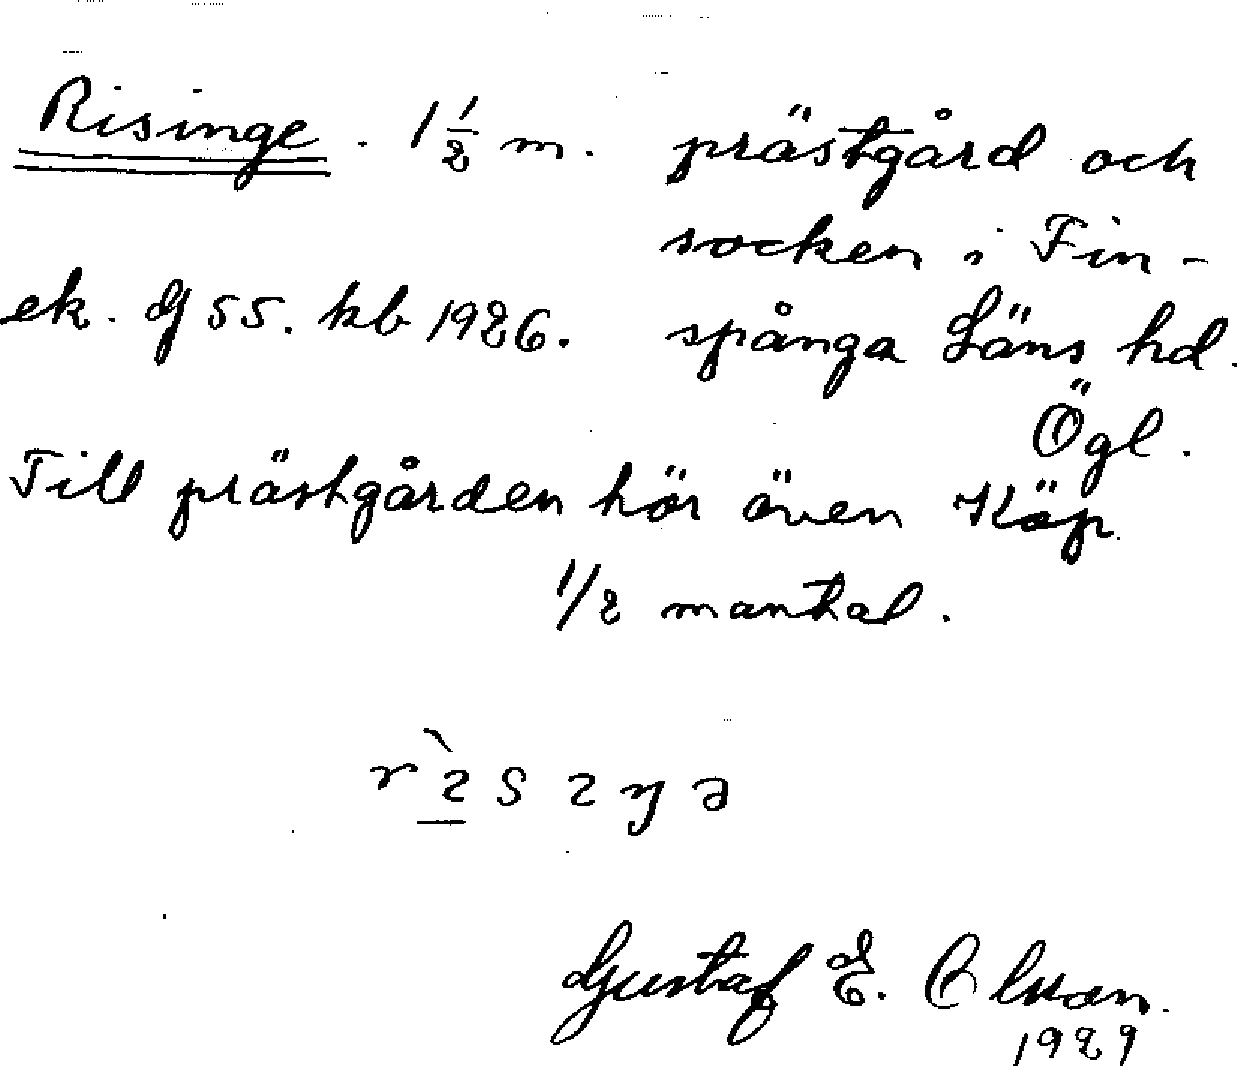 Risinge. 1 1/2 m. prästgård och
socken i Fin-
ek. bl 55. kb 1926. spånga Läns hd.
Ögl.
Till prästgården hör även Köp
1/2 mantal.
Gustaf E. Olson.
1929